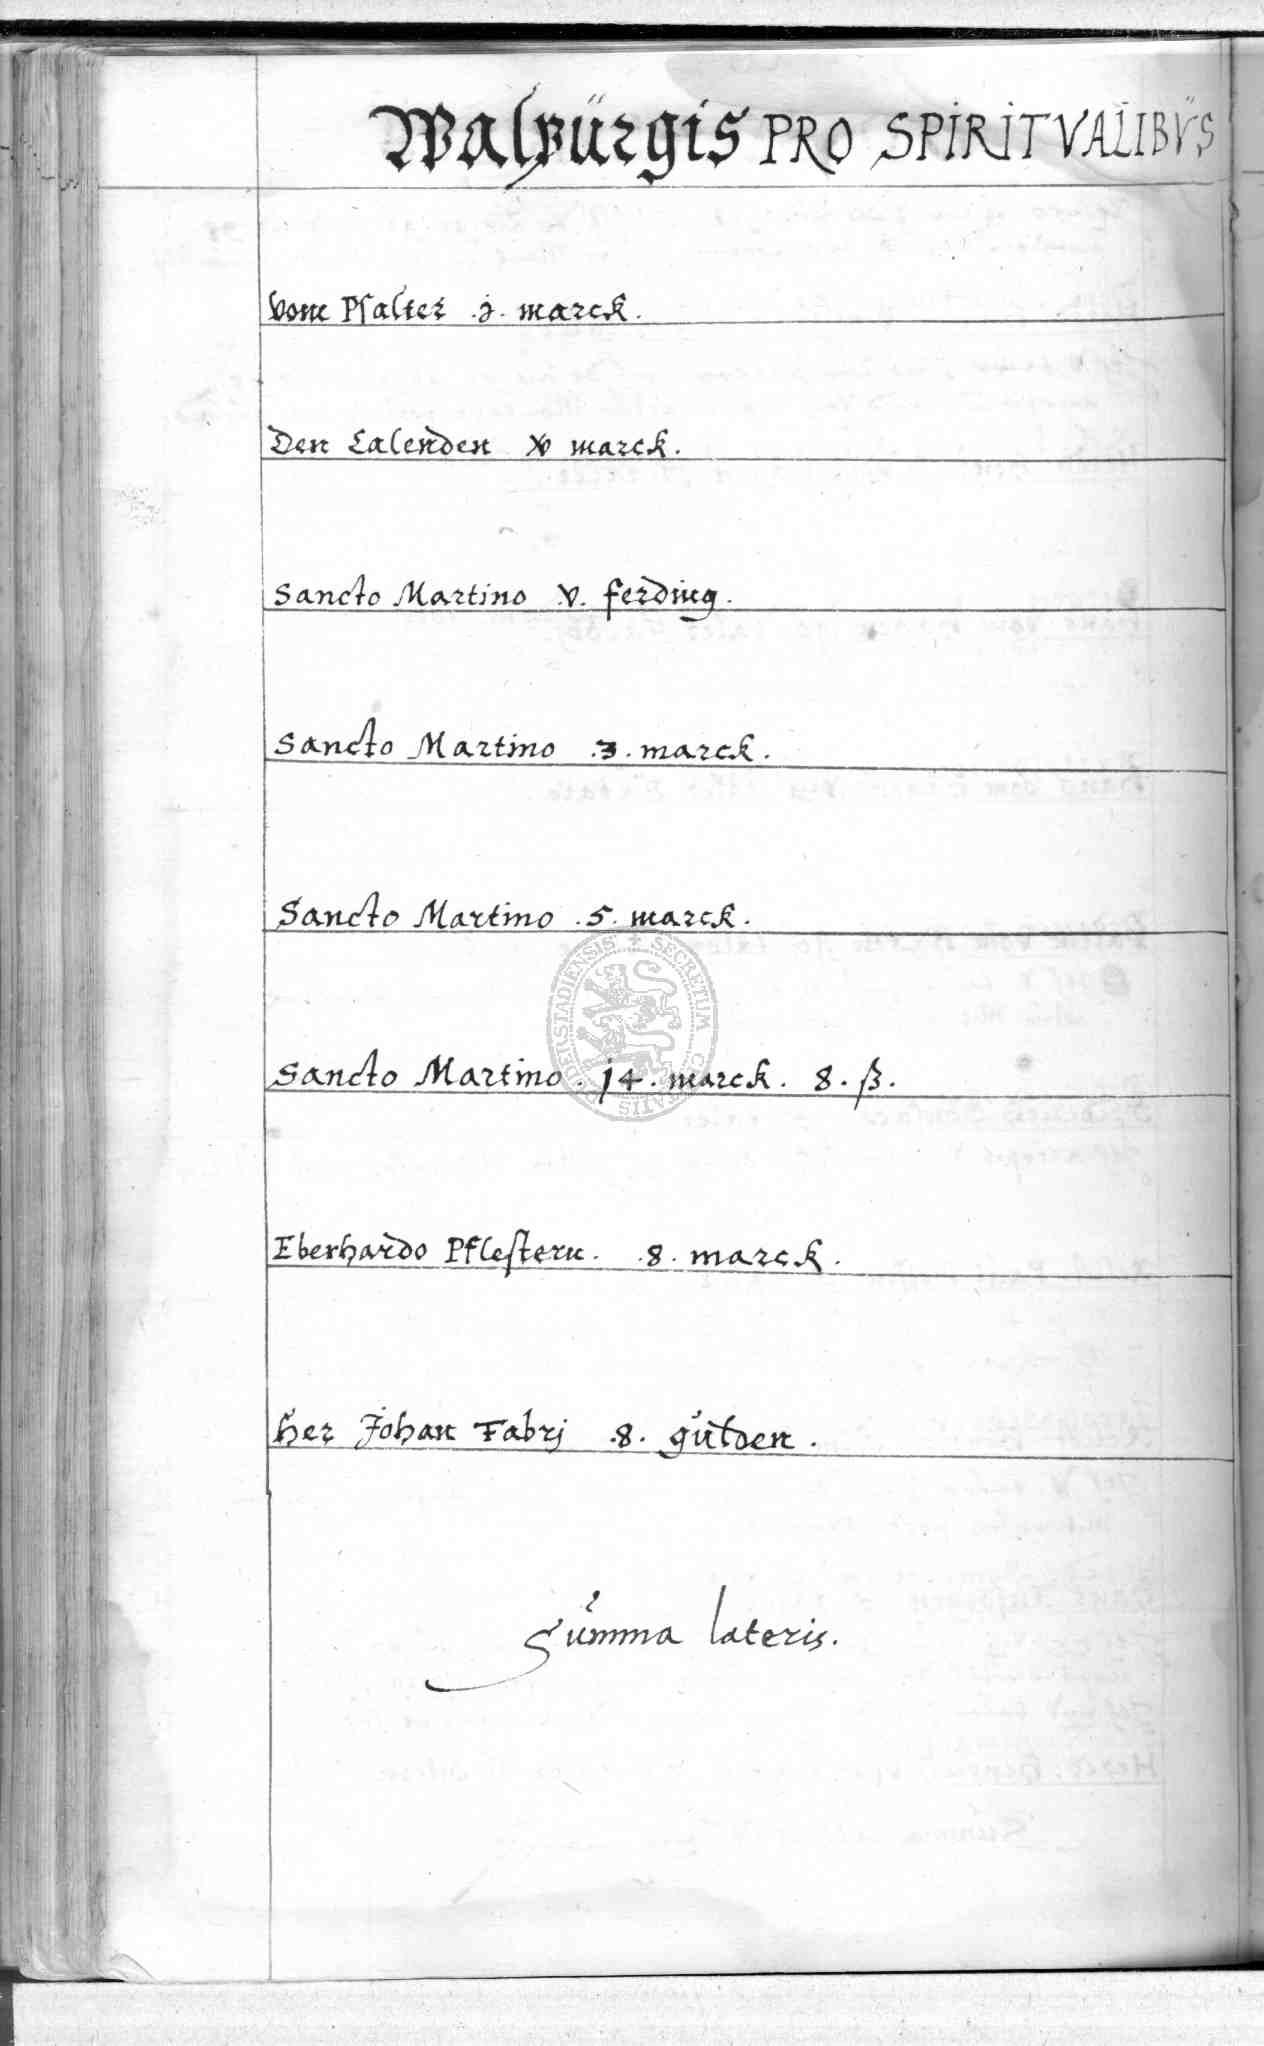 Walpürgis PRO SPIRITVALIBVS
Vom Psalter .j. marck.
Den Calenden xv marck.
Sancto Martino .v. ferding.
Sancto Martino .3. marck.
Sancto Martino .5. marck.
Sancto Martino . j4 . marck . 8 . ß .
Eberhardo Pflestern . .8. marck .
Her Johan Fabrj .8. gulden .
Summa lateris.